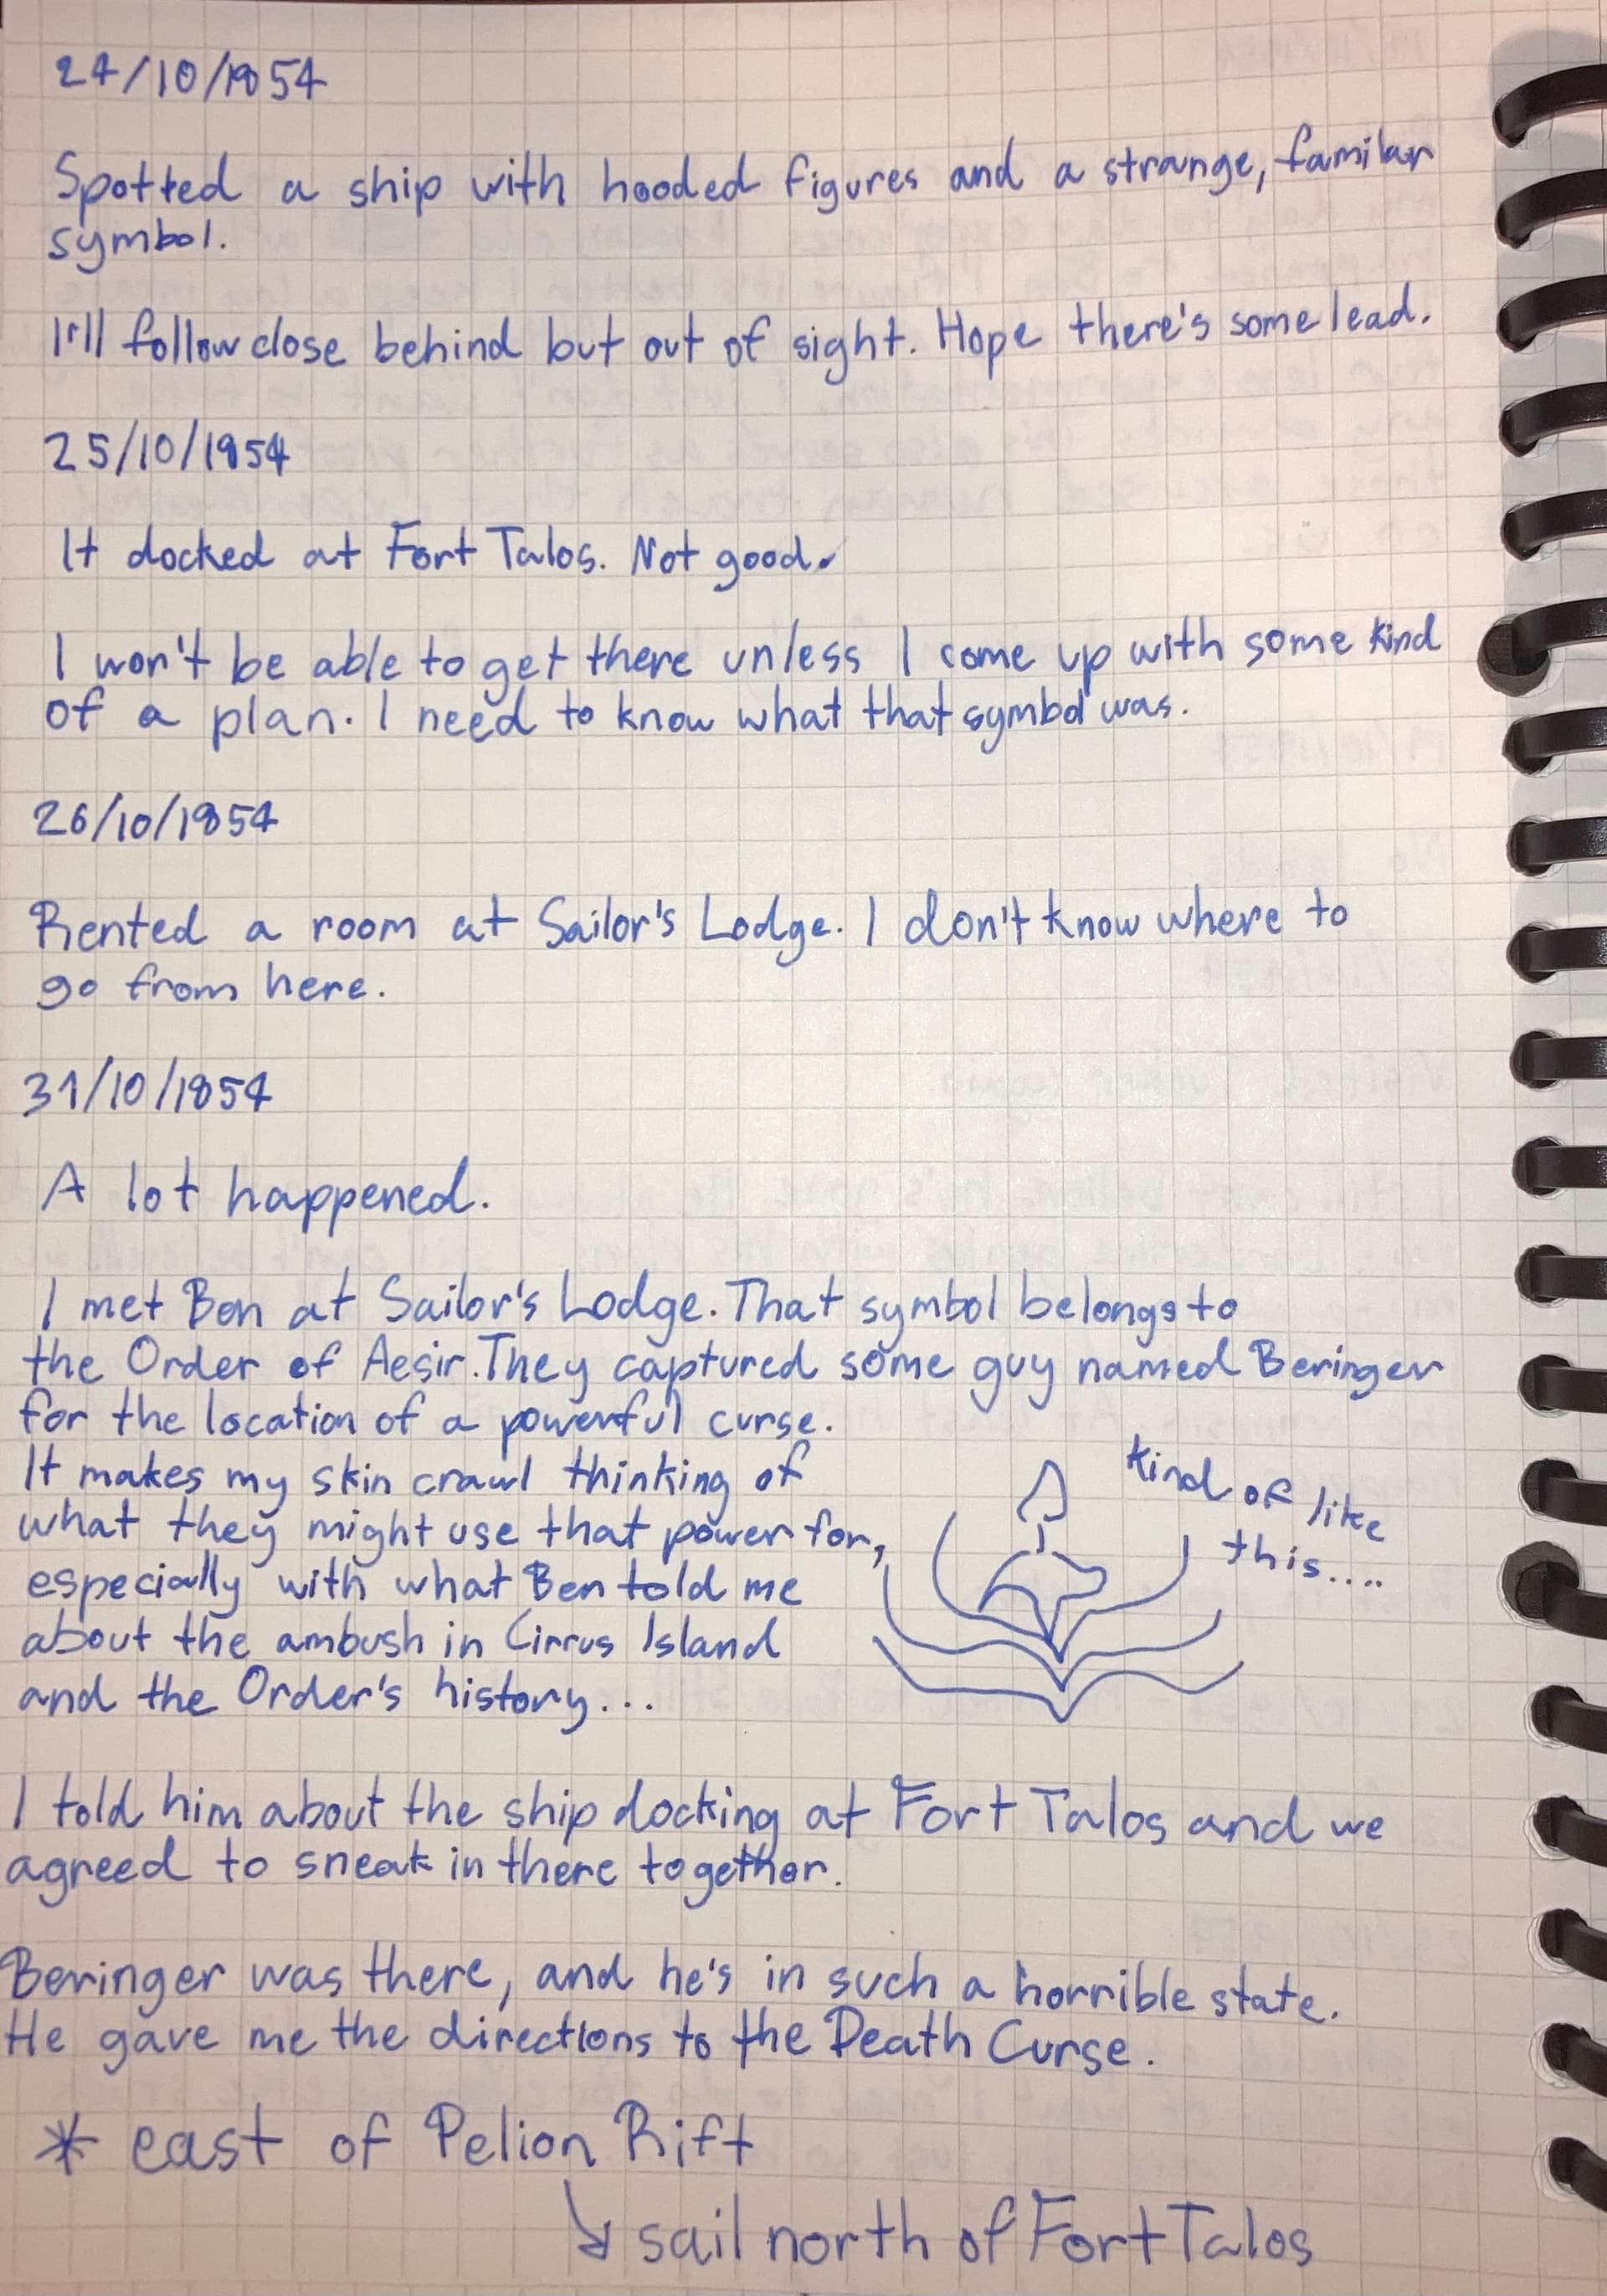 24/10/1854
Spotted a ship with hooded figures and a strange, familar
symbol.
I'll follow close behind but out of sight. Hope there's some lead.
25/10/1854
It docked at Fort Talos. Not good.
I won't be able to get there unless I come up with some kind
of a plan. I need to know what that symbol was.
26/10/1854
Rented a room at Sailor's Lodge. I don't know where to
go from here.
31/10/1854
A lot happened.
I met Ben at Sailor's Lodge. That symbol belongs to
the Order of Aesir. They captured some guy named Beringer
for the location of a powerful curse.
It makes my skin crawl thinking of
what they might use that power for,
especially with what Ben told me
about the ambush in Cirrus Island
and the Order's history...
kind of like
this....
I told him about the ship docking at Fort Talos and we
agreed to sneak in there together.
Beringer was there, and he's in such a horrible state.
He gave me the directions to the Death Curse.
* east of Pelion Rift
↘ sail north of Fort Talos